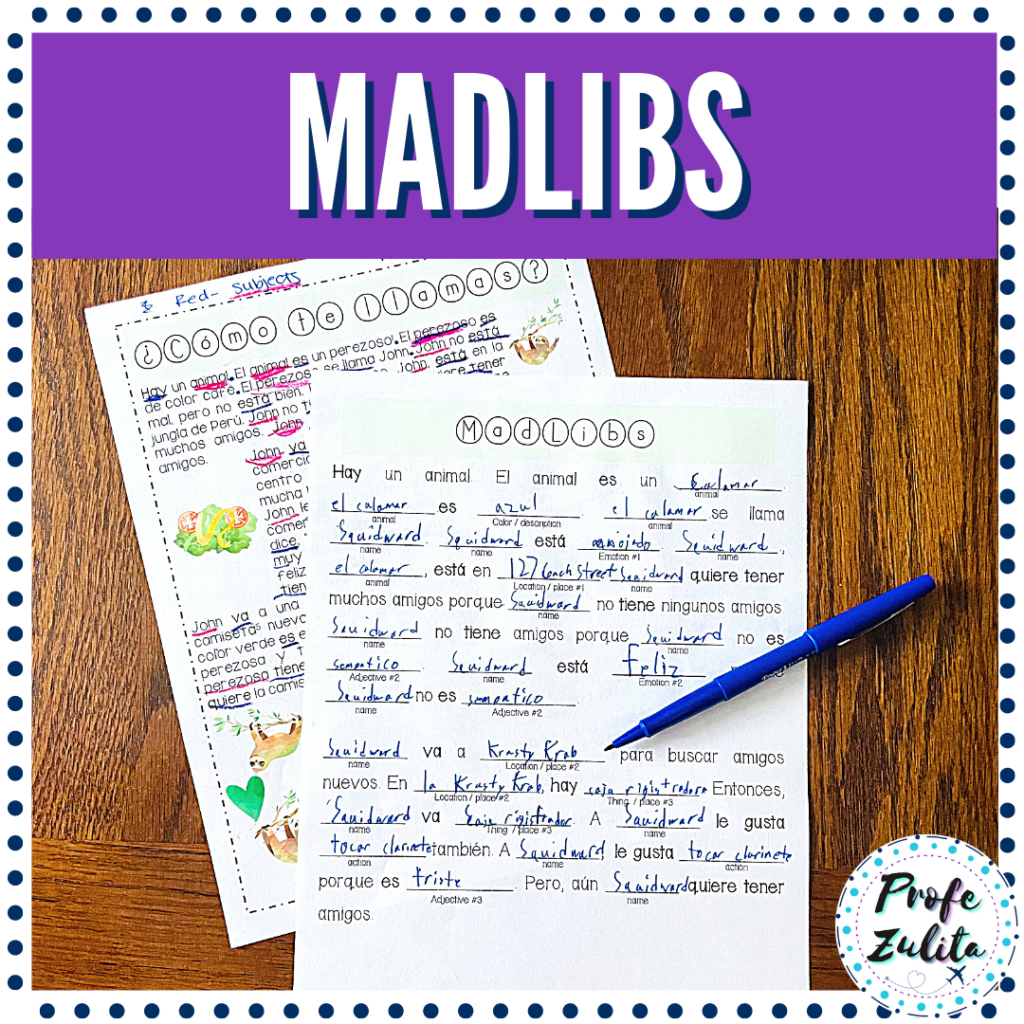 MADLIBS
Red- Subjects
¿Cómo te llamas?
Hay un animal. El animal es un perezoso. El perezoso es
de color café. El perezoso se llama John. John no está
mal, pero no está bien. John, está en la
jungla de Perú. John no tiene
muchos amigos. John
amigos.
John va
comercial
centro
mucha
John le
comer
dice,
muy
feliz
tien
John va a una
camisetas nuevo
color verde es e
perezosa y t
perezoso tiene
quiere la camis
MadLibs
Hay un animal. El animal es un calamar.
animal
el calamar es azul. el calamar se llama
animal Color / description animal
Squidward. Squidward está enojado. Squidward,
name name Emotion #1 name
el calamar, está en 127 Conch Street Squidward quiere tener
animal Location / place #1 name
muchos amigos porque Squidward no tiene ningunos amigos.
name
Squidward no tiene amigos porque Squidward no es
name name
sempatico. Squidward está feliz
Adjective #2 name Emotion #2
Squidward no es sempatico.
name Adjective #2
Squidward va a Krusty Krab para buscar amigos
name Location / place #2
nuevos. En la Krusty Krab, hay caja rigistradora Entonces,
Location / place #2 Thing / place #3
Squidward va caja rigistrador. A Squidward le gusta
name Thing / place #3 name
tocar clarinete también. A Squidward, le gusta tocar clarinete
action name action
porque es triste. Pero, aún Squidward quiere tener
Adjective #3 name
amigos.
Profe
Zulita